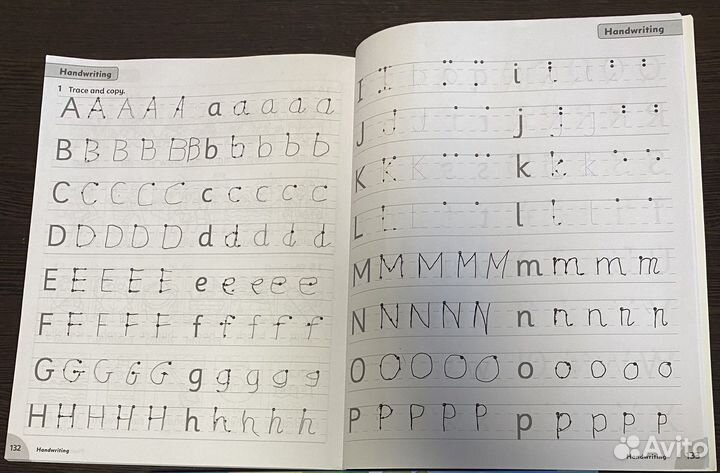 Handwriting
1 Trace and copy.
A A A A A a a a a a
B B B B B B b b b b b
C C C C C c c c c c
D D D D D d d d d d
E E E E E e e e e e
F F F F F f f f f f
G G G G G g g g g g
H H H H H h h h h h
132 Handwriting
Handwriting
I I i
J J j j
K K k k k
L L l l
M M M M M m m m m m
N N N N N n n n n n
O O O O O o o o o o
P P P P P p p p p p
Handwriting 133
Avito